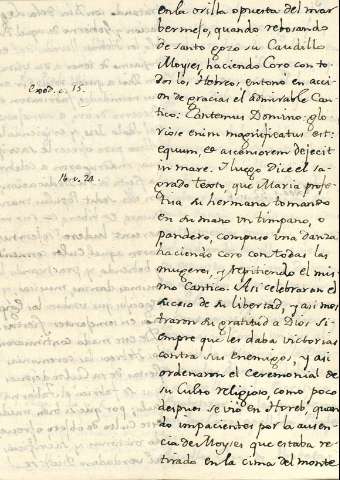 en la orilla opuesta del mar
bermejo, quando rebosando
de santo gozo su Caudillo
Moyses, haciendo Coro con to-
dos los Hebreos, entonó en acci-
on de gracias el admirable Can-
tico: Cantemus Domino: glo-
riose enim magnificatus est:
equum, et ascensorem dejecit
in mare. I luego dice el sa-
grado texto, que Maria profe-
tisa su hermana tomando
en su mano un timpano, o
pandero, compuso una danza
haciendo coro con todas las
mugeres, y repitiendo el mis-
mo Cantico. Asi celebraron el
suceso de su libertad, y asi mos-
traron su gratitud a Dios Si-
empre que les daba victorias
contra sus enemigos, y asi
ordenaron el Ceremonial de
su Culto religioso, como poco
despues se vió en Horeb, quan-
do impacientes por la ausen-
cia de Moyses que estaba re-
tirado en la cima del monte
Exod. c. 15.
Ib. v. 21.